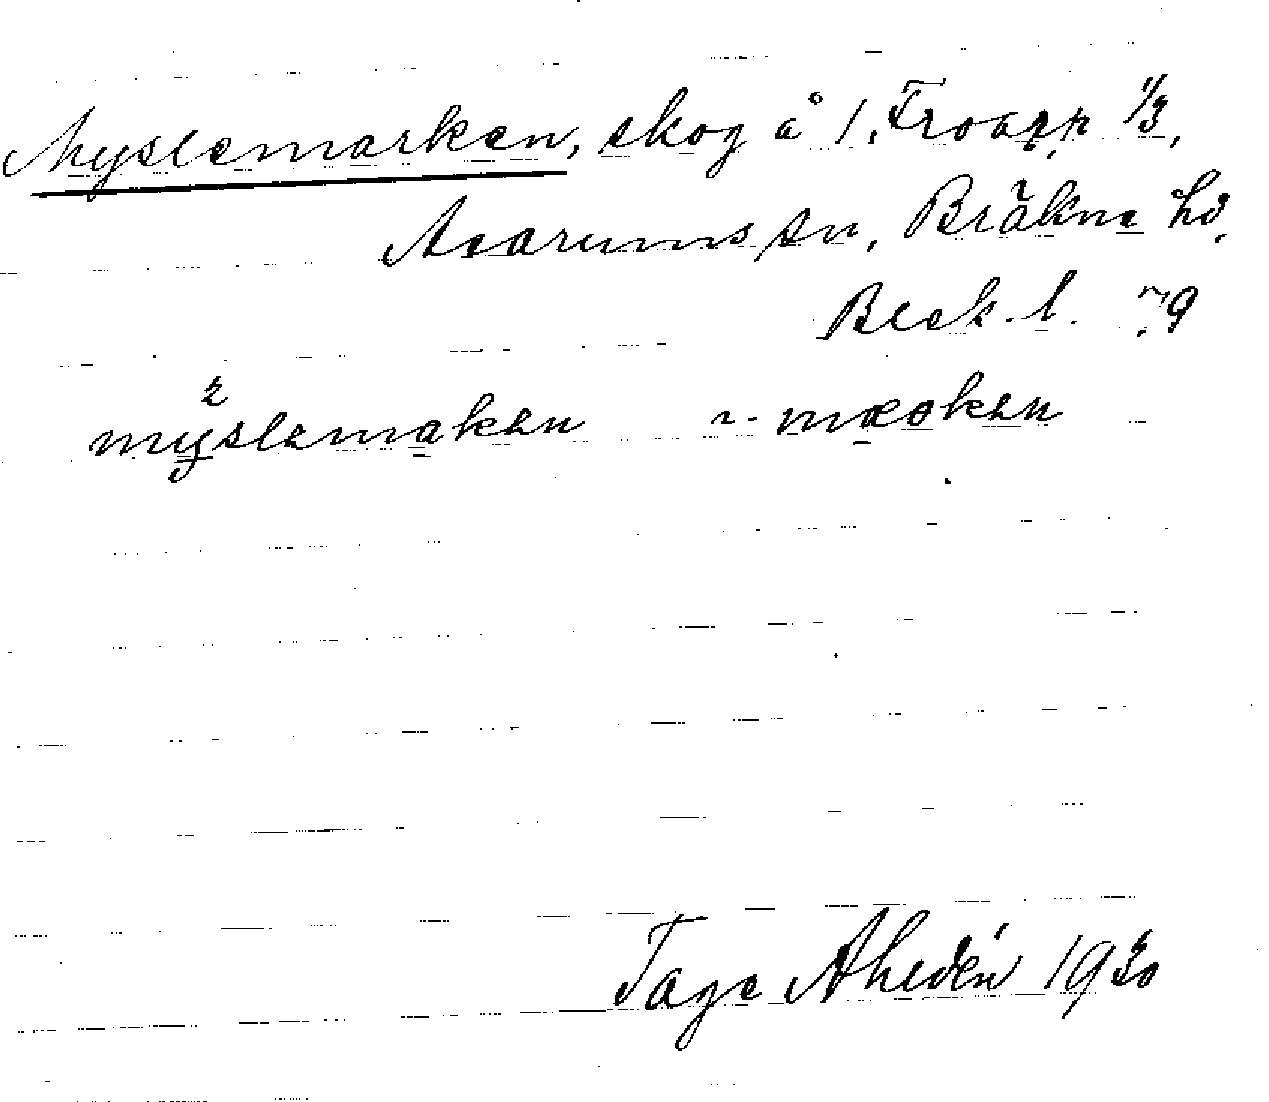 Myslemarken, skog å 1, Froarp 1/3,
Asarums sn, Bräkne hd,
Blek. l. 79
myslemakan ~- maokan
Tage Ahldén 1930